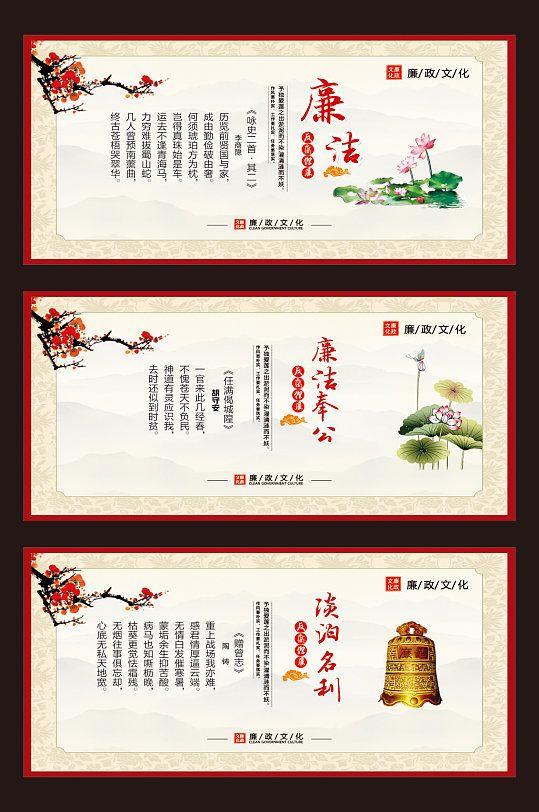 廉政文化
廉/政/文/化
廉洁
反腐倡廉
予独爱莲之出淤泥而不染,濯清涟而不妖。
作风要朴实,工作要扎实,任务要落实。
《咏史二首·其二》
李商隐
历览前贤国与家,
成由勤俭破由奢。
何须琥珀方为枕,
岂得真珠始是车。
运去不逢青海马,
力穷难拔蜀山蛇。
几人曾预南薰曲,
终古苍梧哭翠华。
廉/政/文/化
CLEAN GOVERNMENT CULTURE
廉政文化
廉/政/文/化
廉洁奉公
反腐倡廉
予独爱莲之出淤泥而不染,濯清涟而不妖。
作风要朴实,工作要扎实,任务要落实。
《任满偈城隍》
胡守安
一官来此几经春,
不愧苍天不负民。
神道有灵应识我,
去时还似到时贫。
廉/政/文/化
CLEAN GOVERNMENT CULTURE
廉政文化
廉/政/文/化
淡泊名利
反腐倡廉
予独爱莲之出淤泥而不染,濯清涟而不妖。
作风要朴实,工作要扎实,任务要落实。
《赠曾志》
陶铸
重上战场我亦难,
感君情厚逼云端。
无情白发催寒暑,
蒙垢余生抑苦酸。
病马也知嘶枥晚,
枯葵更觉怯霜残。
无烟往事俱忘却,
心底无私天地宽。
廉/政/文/化
CLEAN GOVERNMENT CULTURE